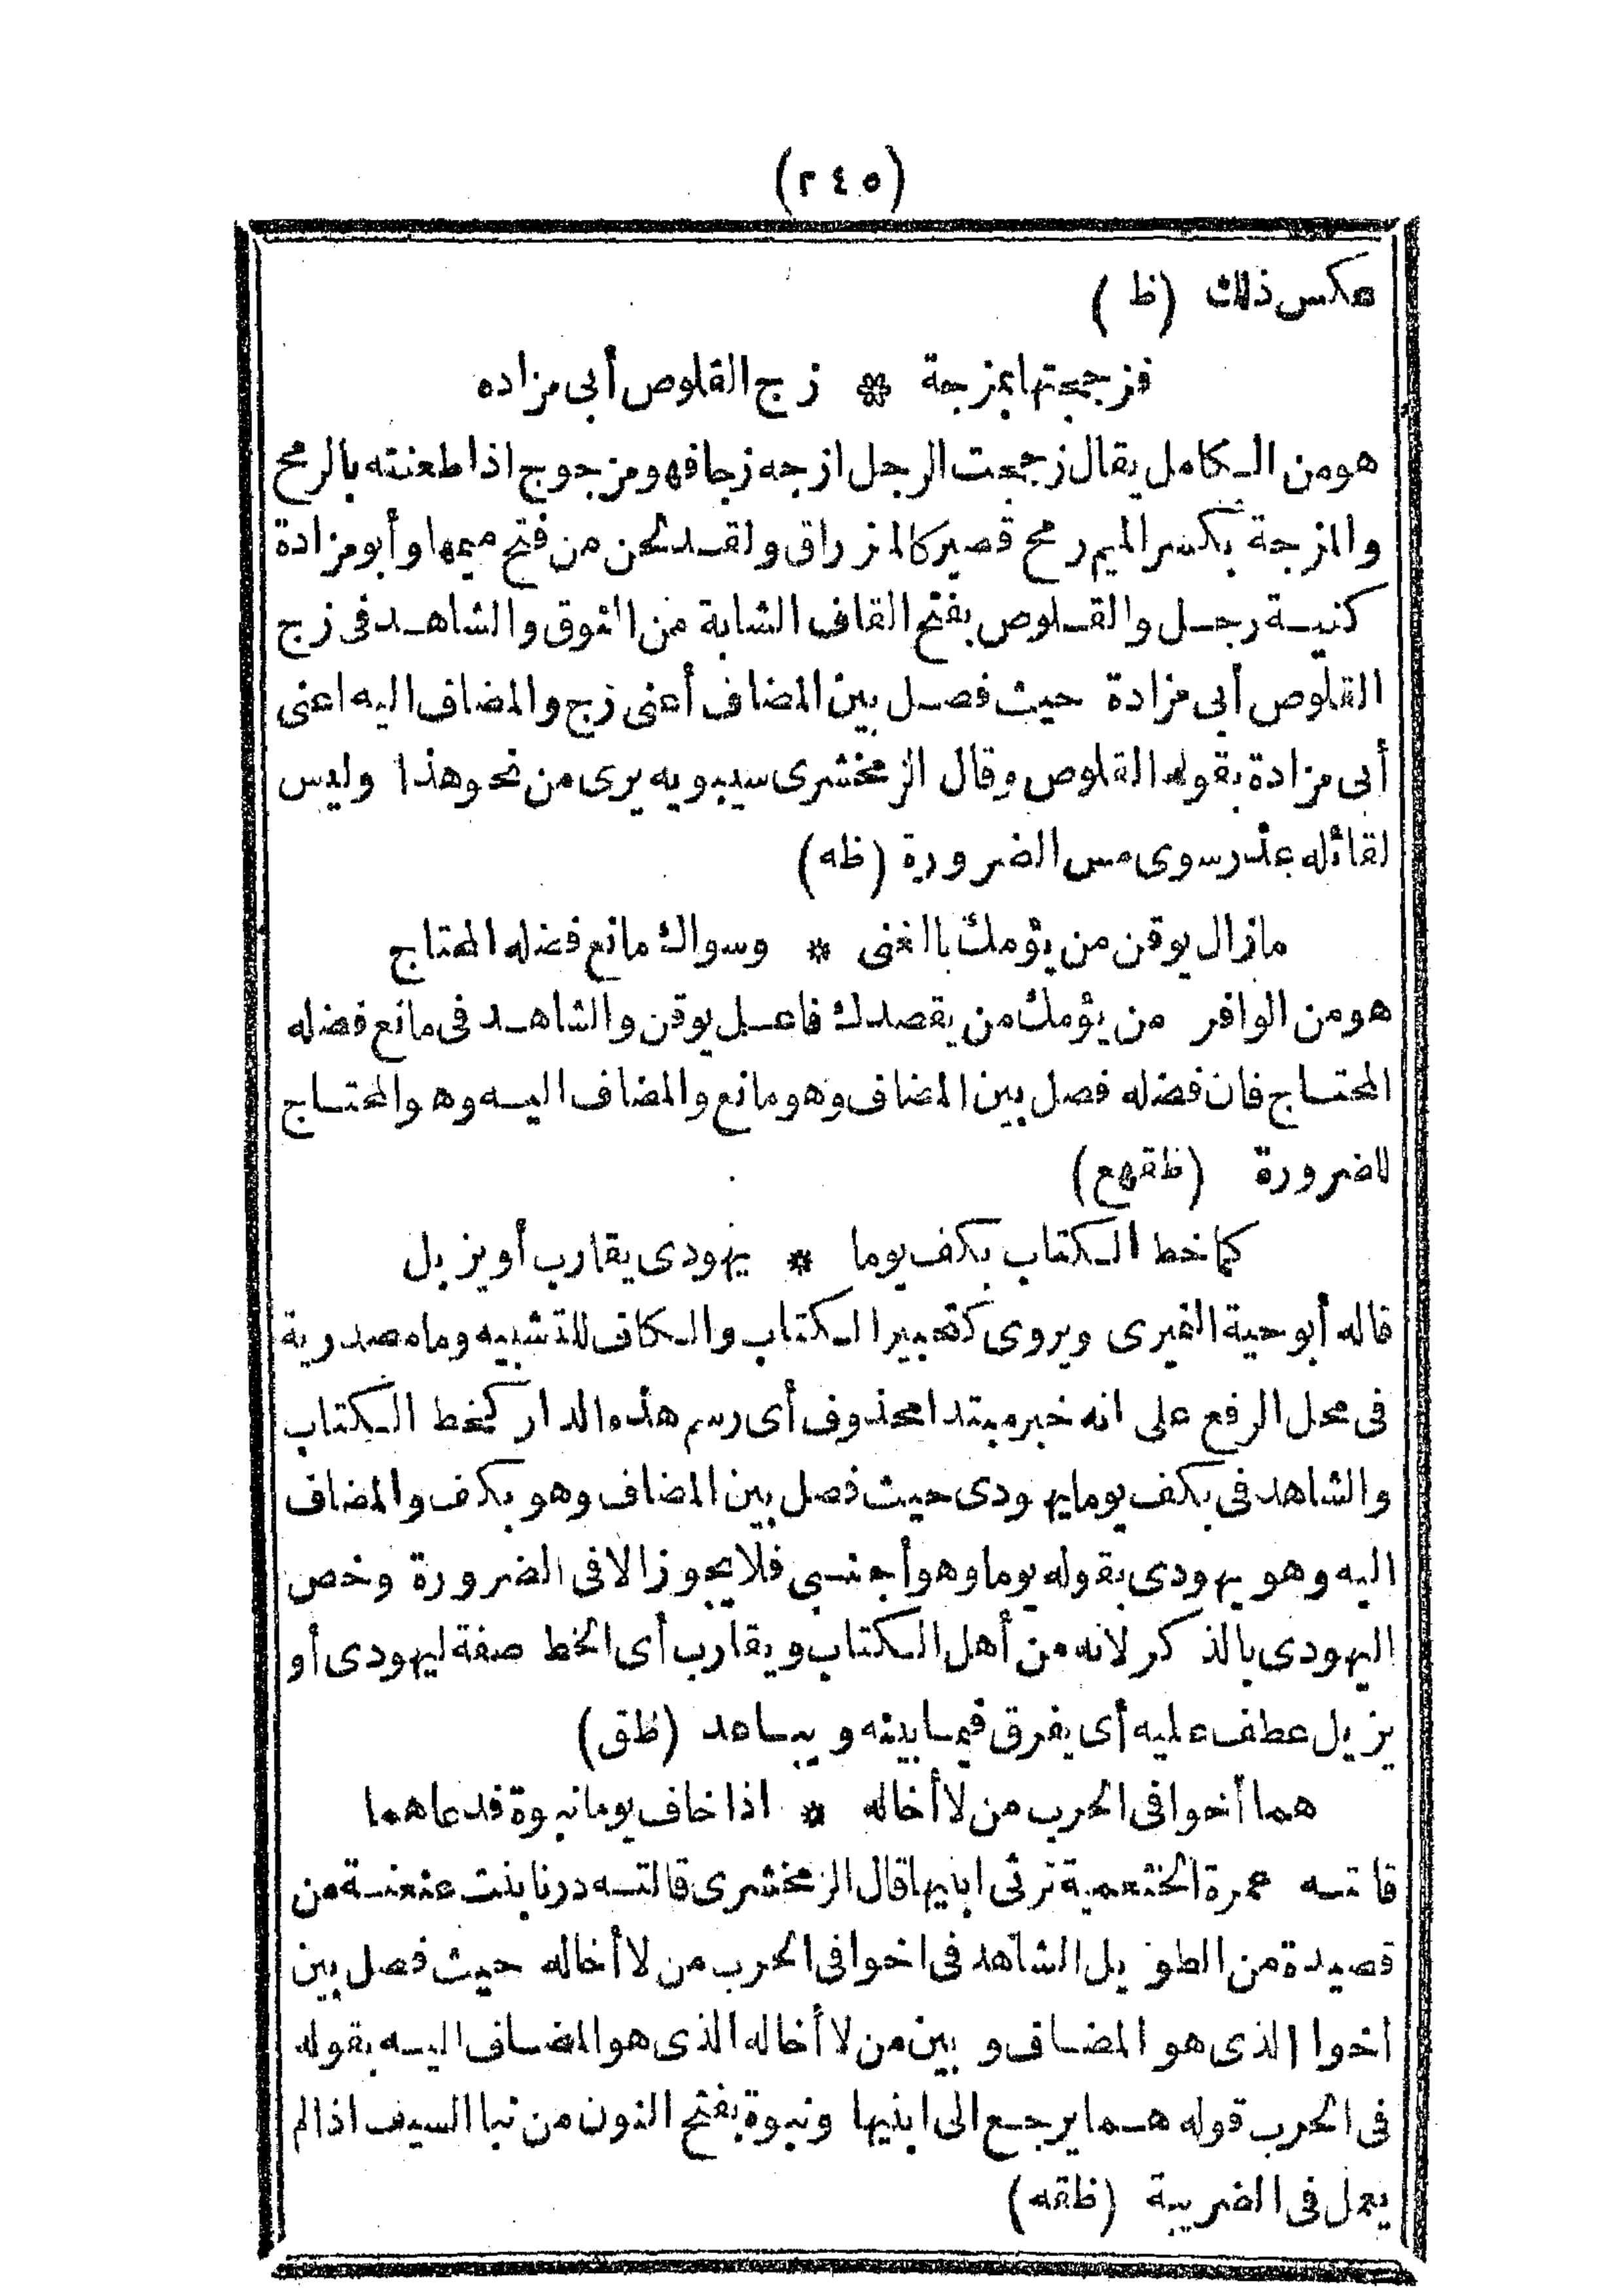 (٢٤٥)
عكس ذلك (ظ)
فزججتها بمزجة * زج القلوص أبى مزاده
هو من الكامل يقال زججت الرجل ازجه زجا فهو مزجوج اذا طعنته بالرمح
والمزجة بكسر الميم رمح قصير كالمزراق ولقد لحن من فتح ميمها وأبو مزادة
كنية رجل والقلوص بفتح القاف الشابة من النوق والشاهد فى زج
القلوص أبى مزادة حيث فصل بين المضاف أعنى زج والمضاف اليه اعنى
أبى مزادة بقوله القلوص وقال الزمخشرى سيبويه يرى من نحو هذا وليس
لقائله عذر سوى مس الضرورة (ظه)
مازال يوقن من يؤمك باالغنى * وسواك مانع فضله المحتاج
هو من الوافر من يؤمك من يقصدك فاعل يوقن والشاهد فى مانع فضله
المحتاج فان فضله فصل بين المضاف وهو مانع والمضاف اليه وهو المحتاج
للضرورة (ظقهع)
كما خط الكتاب بكف يوما * يهودى يقارب أو يزيل
قاله أبو حية النميرى ويروى كتحبير الكتاب والكاف للتشبيه وما مصدرية
فى محل الرفع على انه خبر مبتدا محذوف أى رسم هذه الدار كخط الكتاب
والشاهد فى بكف يوما يهودى حيث فصل بين المضاف وهو بكف والمضاف
اليه وهو يهودى بقوله يوما وهو أجنسبى فلا يجوز الا فى الضرورة وخص
اليهودى بالذكر لانه من أهل الكتاب ويقارب أى الخط صفة ليهودى أو
يزيل عطف عليه أى يفرق فيما بينه ويباعد (ظق)
هما أخوا فى الحرب من لا أخاله * اذا خاف يوما نبوة فدعاهما
قاتسه عمرة الخثعمية ترثى ابنيها قال الزمخشرى قالتسه درنا بنت عنعنسة من
قصيدة من الطويل الشاهد فى اخوا فى الحرب من لا أخاله حيث فصل بين
اخوا الذى هو المضاف و بين من لا أخاله الذى هو المضاف اليه بقوله
فى الحرب قوله هما يرجع الى ابنيها ونبوة بفتح النون من نبا السيف اذا لم
يعمل فى الضريبة (ظقه)